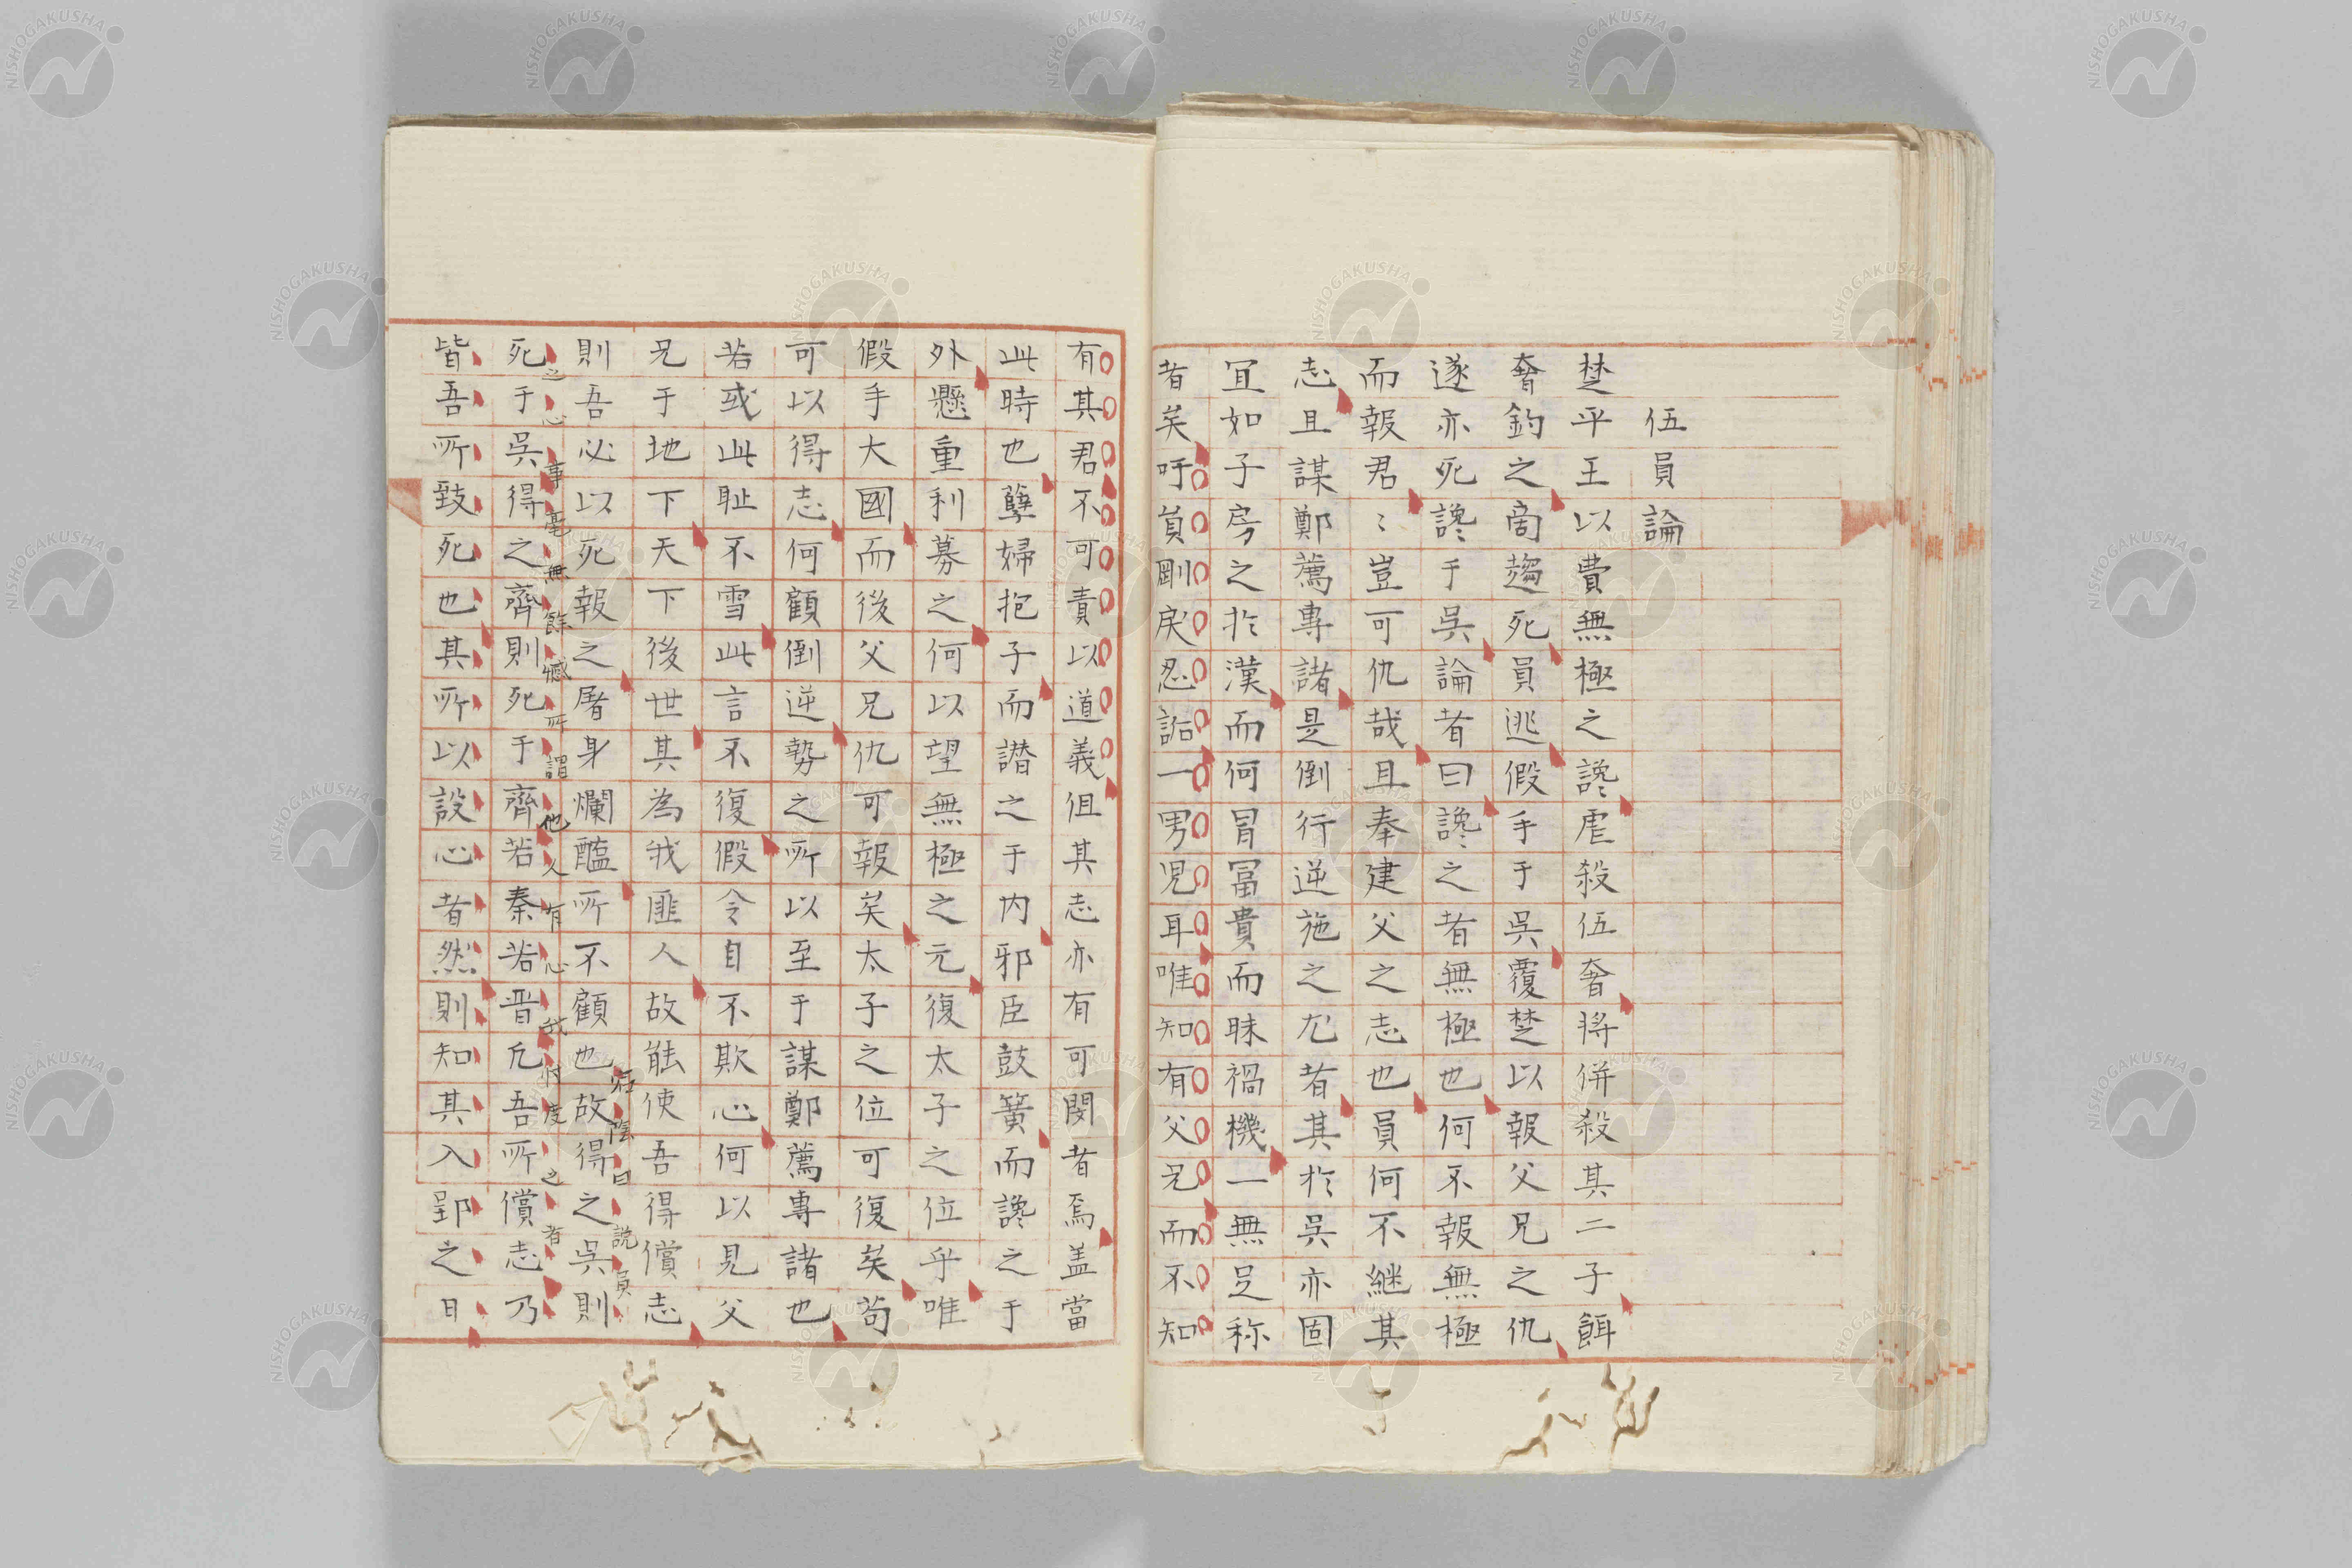 伍員論
楚平王以費無極之讒虐殺伍奢將併殺其二子餌
奢釣之啇趨死員逃假手于吳覆楚以報父兄之仇
遂亦死讒于吳論者曰讒之者無極也何不報無極
而報君〻豈可仇哉且奉建父之志也員何不継其
志且謀鄭薦專諸是倒行逆施之尤者其於吳亦固
冝如子房之於漢而何冒冨貴而昧禍機一無足称
者矣吁員剛戾忍訽一男児耳唯知有父兄而不知
有其君不可責以道義但其志亦有可閔者焉盖當
此時也孽婦抱子而譖之于内邪臣鼓簧而讒之于
外懸重利募之何以望無極之元復太子之位乎唯
假手大國而後父兄仇可報矣太子之位可復矣苟
可以得志何顧倒逆勢之所以至于謀鄭薦專諸也
若或此耻不雪此言不復假令自不欺心何以見父
兄于地下天下後世其為我匪人故能使吾得償志
則吾必以死報之屠身爛醢所不顧也故得之吳則
死于吳得之齊則死于齊若秦若晋凢吾所償志乃
皆吾所致死也其所以設心者然則知其入郢之日
狂陰曰說員
之心事毫無餘憾所謂他人有心我忖度之者
NISHOGAKUSHA